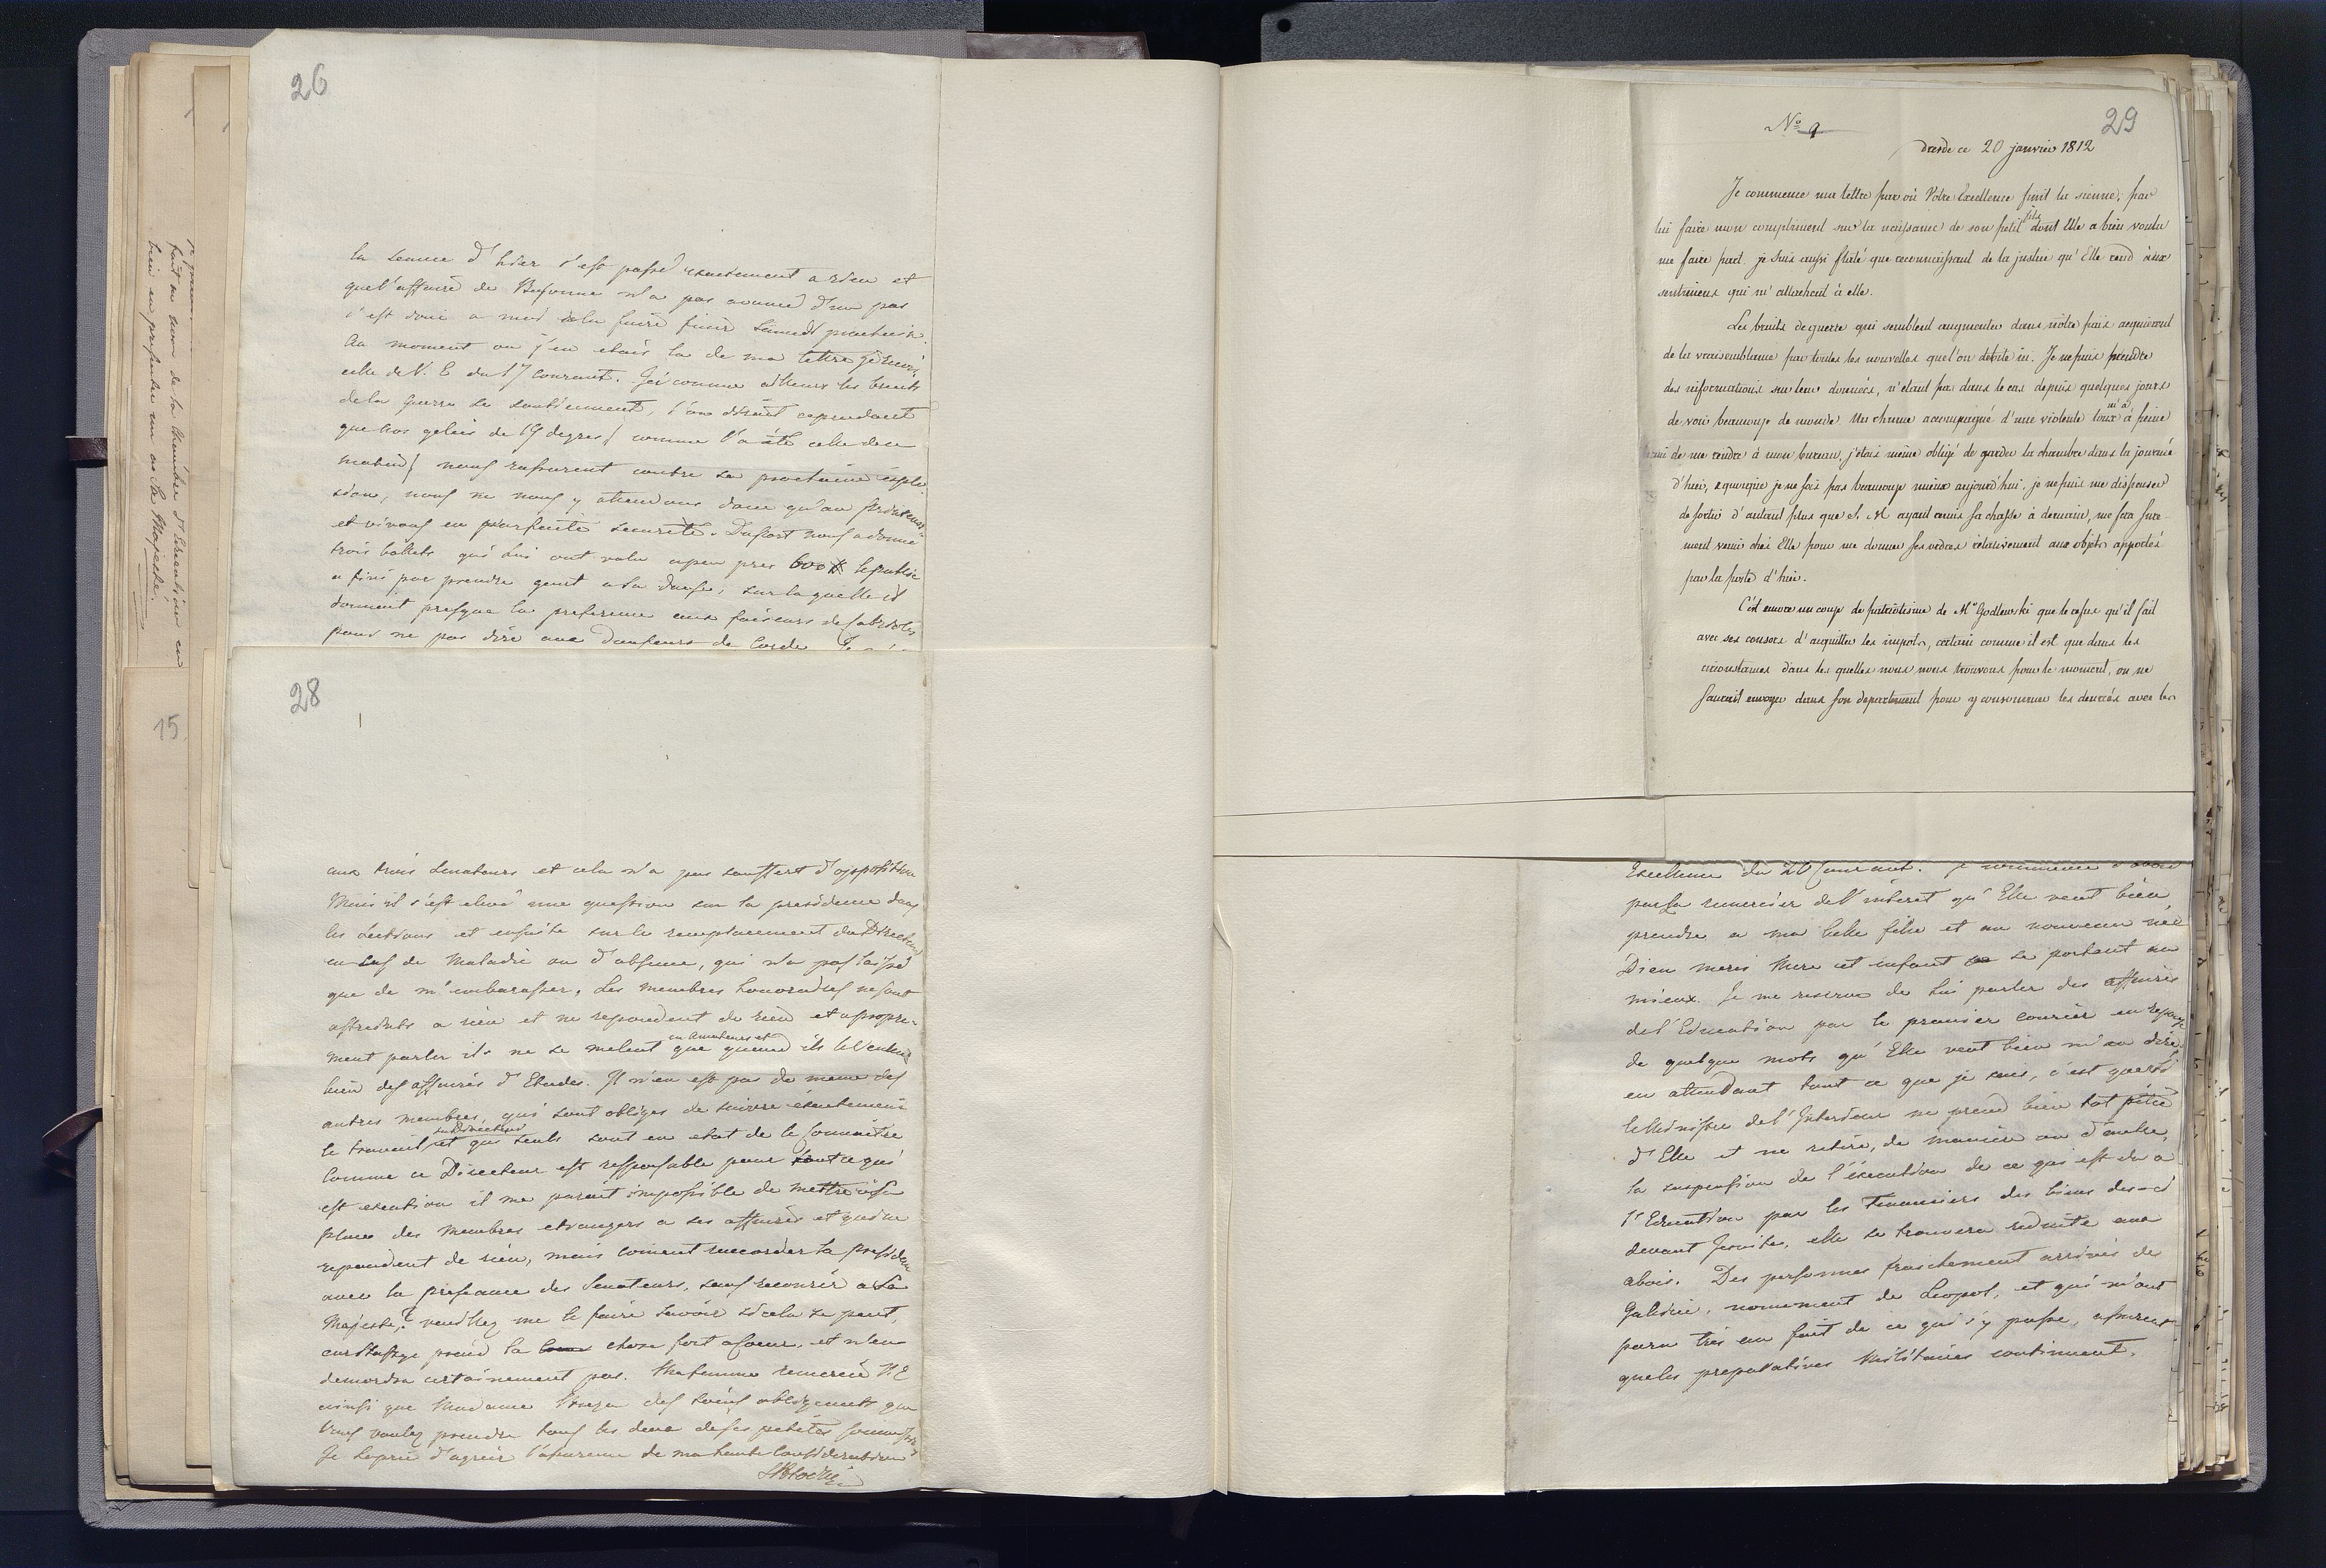 26
la seance d'hier s'est passé exactement a rien et
que l'affaire de Bayonne n'a pas avancé d'un pas
c'est donc a moi de la faire finir Samedi prochain.
Au moment ou j'en etais la de ma lettre je recois
celle de V. E. du 17 courant. Ici comme ailleurs les bruits
de la guerre se soutiennent, l'on dirait cependant
que nos gelées de 19 degres (comme l'a été celle de ce
matin) nous rassurent contre sa prochaine explo-
sion, nous ne nous y attendons donc qu'au printems
et vivons en parfaite securité. Duport nous a donné
trois ballets qui lui ont valu a peu pres 600 # le public
a fini par prendre gout a la danse, sur laquelle il
donnent presque la preference aux faiseurs de cabrioles
pour ne pas dire aux danseurs de corde
28
aux trois Senateurs et cela n'a pas souffert d'opposition
Mais il s'est elevé une question sur la presidence dans
les Sections et ensuite sur le remplacement du Directeur
en cas de Maladie ou d'absence, qui n'a pas laissé
que de m'embarasser. Les membres honoraires ne sont
astreints a rien et ne repondent de rien et a propre-
ment parler ils ne se melent en Amateurs et que quand ils le veulent
bien des affaires d'Etudes. Il n'en est pas de meme des
autres membres, qui sont obligés de suivre exactement
le travail et qui seuls sont en etat de le Connaitre
Comme ce Directeur est responsable pour tout ce qui
est execution il me parait impossible de mettre a sa
place des Membres etrangers a ses affaires et qui ne
repondent de rien, mais coment accorder la presidence
avec la preseance des Senateurs, sans recourir a Sa
Majesté? veuillez me le faire savoir si cela se peut,
car Stassye prend la chose fort a coeur, et n'en
demordra certainement pas. Ma femme remercie V. E
ainsi que Madame Breza des soins obligeants que
Vous voulez prendre tous les deux de ses petites commissions
Je La prie d'agréer l'assurance de ma haute Consideration
S Potocki
se
faut au nom de la chambre d'Education en
bien en presenter un a Sa Majesté.
15
29
No 9
dresde ce 20 janvier 1812
Je commence ma lettre par où Votre Excellence finit la sienne; par
lui faire mon compliment sur la naissance de son petit fils dont Elle a bien voulu
me faire part. je suis aussi flaté que reconnaissant de la justice qu'Elle rend aux
sentimens qui m'attachent à elle.
Les bruits de guerre qui semblent augmenter dans nôtre païs acquierent
de la vraisemblance par toutes les nouvelles que l'on débite ici. Je ne puis prendre
des informations sur leur données, n'étant pas dans le cas depuis quelques jours
de voir beaucoup de monde. Un rhume accompagné d'une violente toux m'a à peine
permi de me rendre à mon bureau, j'étois même obligé de garder la chambre dans la journée
d'hier, & quoique je ne sois pas beaucoup mieux aujourd'hui, je ne puis me dispenser
de sortir d'autant plus que S. M ayant remis sa chasse à demain, me fera sure-
ment venir chés Elle pour me donner ses ordres relativement aux objets apportés
par la poste d'hier.
C'est encore un coup de patriotisme de Mr Godlewski que le refus qu'il fait
avec ses consors d'acquitter les impots, certain comme il est que dans les
circonstances dans les quelles nous nous trouvons pour le moment, on ne
saurait envoyer dans son departement pour y consommer les denrées avec les
Excellence du 20 Courant. je commence d'abord
par La remercier de l'interet qu'Elle veut bien
prendre a ma belle fille et au nouveau née
Dieu merci Mere et enfant se portent au
mieux. Je me reserve de Lui parler des affaires
de l'Education par le premier courier en reponse
de quelque mots qu'Elle veut bien m'en dire
en attendant tout ce que je sais, c'est que si
le Ministre de l'Interieur ne prend bien tot pitié
d'Elle et ne retire, de maniere ou d'autre,
la suspension de l'execution de ce qui est du a
l'Education par les Tenanciers des biens des ci
devant Jesuites, elle se trouvera reduite aux
abois. Des personnes fraichement arrivées de
Galicie, nomement de Leopol, et qui m'ont
paru très au fait de ce qui s'y passe, assurent
que les preparatives Militaires continuent.